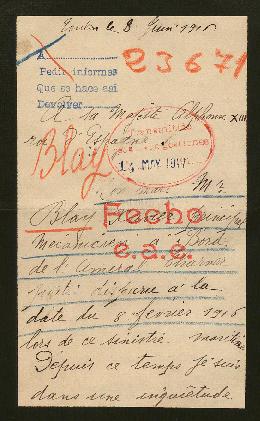 Toulon le 8 Juin 1916
A
23671
Pedir informes
Que se hace asi
Devolver
A Sa Majesté Alphonse XIII
roi d'Espagne
Blay
MAY 1917
Mon mari Mr
Blay
Fecho
Mécanicien à Bord
e.a.e.
de l'Amiral Charner
porté disparu à la
date du 8 février 1916
lors de ce sinistre maritime
Depuis ce temps je suis
dans une inquiétude